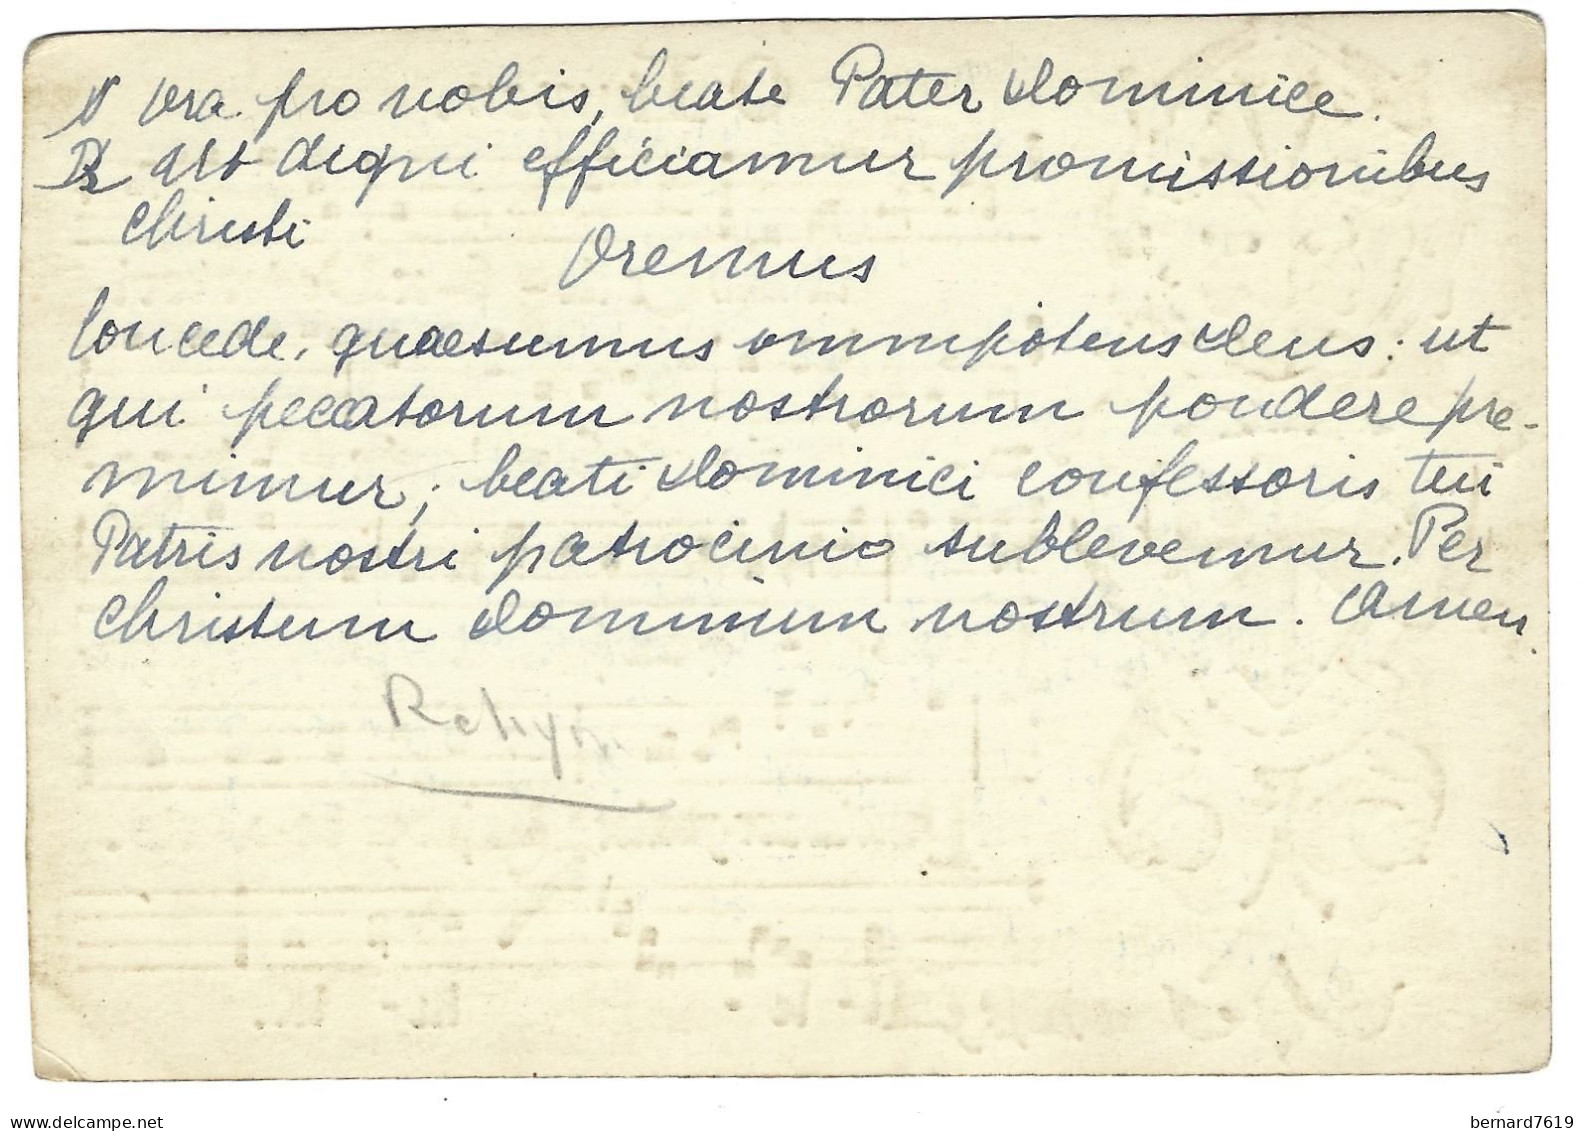 ℣ Ora pro nobis, beate Pater Dominice.
℟ Ut digni efficiamur promissionibus
Christi
Oremus
Concede, quaesumus omnipotens Deus: ut
qui peccatorum nostrorum pondere pre-
mimur, beati Dominici confessoris tui
Patris nostri patrocinio sublevemur. Per
Christum Dominum nostrum. Amen.
delcampe.net
bernard7619